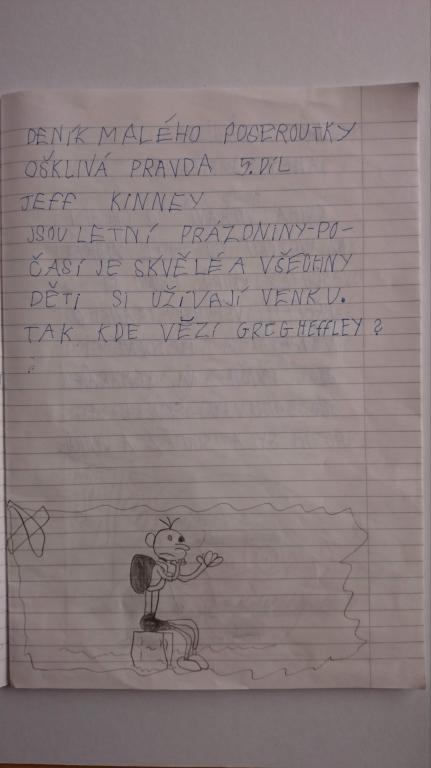 DENÍK MALÉHO POSEROUTKY
OŠKLIVÁ PRAVDA 5.DÍL
JEFF KINNEY
JSOU LETNÍ PRÁZDNINY-PO-
ČASÍ JE SKVĚLÉ A VŠECHNY
DĚTI SI UŽÍVAJÍ VENKU.
TAK KDE VĚZÍ GREG HEFFLEY?